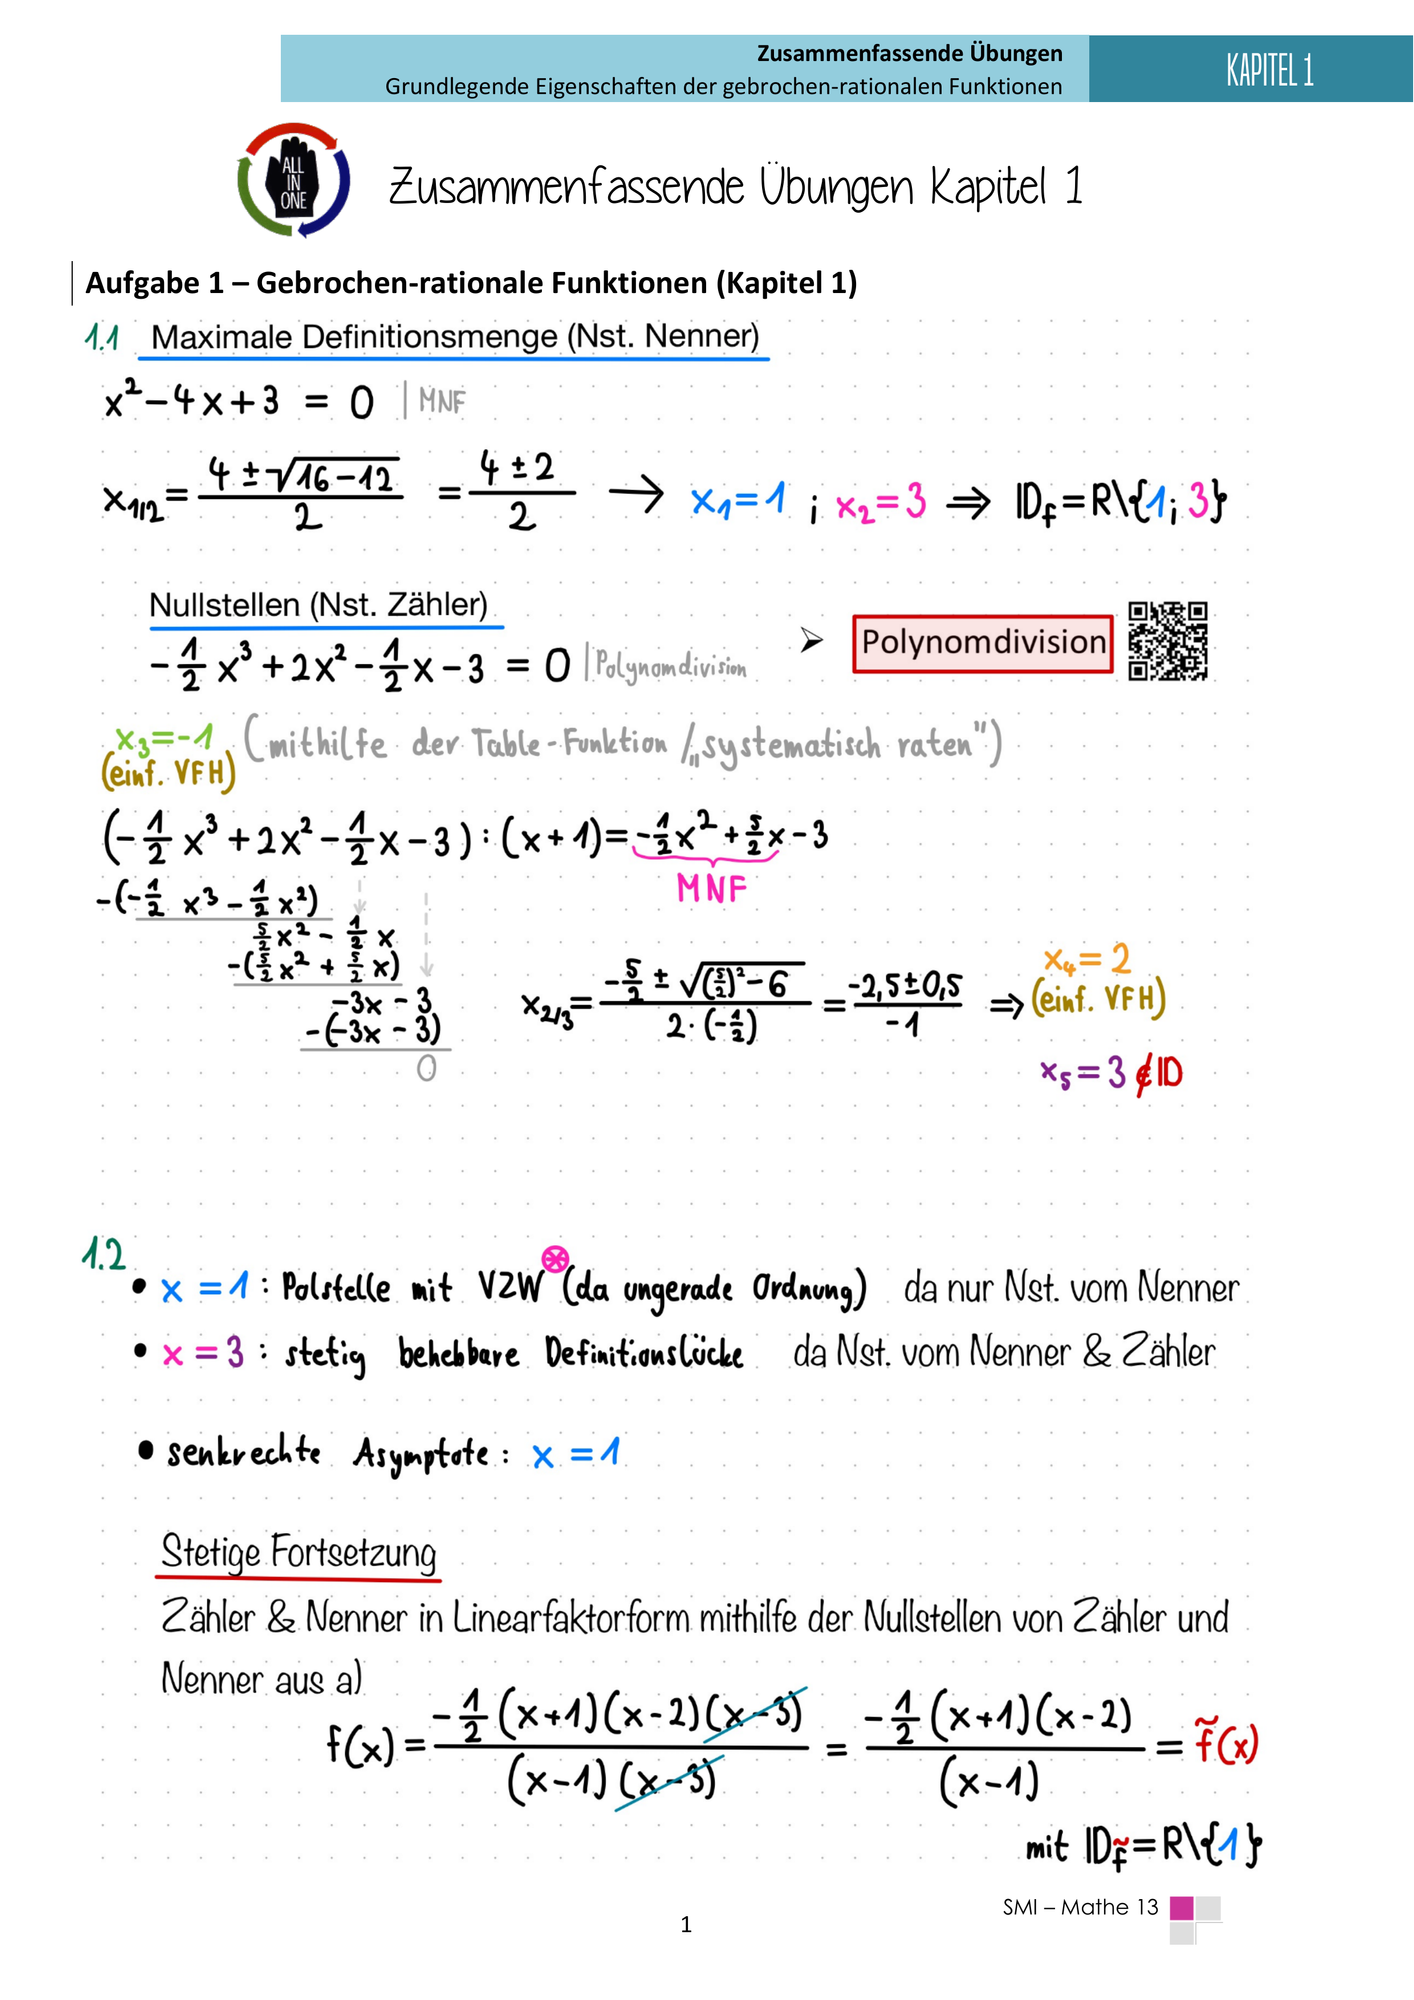 Zusammenfassende Übungen
Grundlegende Eigenschaften der gebrochen-rationalen Funktionen
KAPITEL 1
ALL
IN
ONE
Zusammenfassende Übungen Kapitel 1
Aufgabe 1 – Gebrochen-rationale Funktionen (Kapitel 1)
1.1 Maximale Definitionsmenge (Nst. Nenner)
x² − 4x + 3 = 0 | MNF
x₁/₂ = (4 ± √(16 − 12))/2 = (4 ± 2)/2 → x₁ = 1 ; x₂ = 3 ⇒ ID_f = R\{1; 3}
Nullstellen (Nst. Zähler)
−1/2 x³ + 2x² − 1/2 x − 3 = 0 | Polynomdivision
➢ Polynomdivision
x₃ = −1 (mithilfe der Table-Funktion / „systematisch raten")
(einf. VFH)
(−1/2 x³ + 2x² − 1/2 x − 3) : (x + 1) = −1/2 x² + 5/2 x − 3
MNF
−(−1/2 x³ − 1/2 x²)
5/2 x² − 1/2 x
−(5/2 x² + 5/2 x)
−3x − 3
−(−3x − 3)
0
x₂/₃ = (−5/2 ± √((5/2)² − 6))/(2 · (−1/2)) = (−2,5 ± 0,5)/−1 ⇒ x₄ = 2
(einf. VFH)
x₅ = 3 ∉ ID
1.2
• x = 1 : Polstelle mit VZW ⊛ (da ungerade Ordnung) da nur Nst. vom Nenner
• x = 3 : stetig behebbare Definitionslücke da Nst. vom Nenner & Zähler
• senkrechte Asymptote : x = 1
Stetige Fortsetzung
Zähler & Nenner in Linearfaktorform mithilfe der Nullstellen von Zähler und
Nenner aus a)
f(x) = (−1/2 (x+1)(x−2)(x−3))/((x−1)(x−3)) = (−1/2 (x+1)(x−2))/((x−1)) = f̃(x)
mit ID_f̃ = R\{1}
SMI – Mathe 13
1